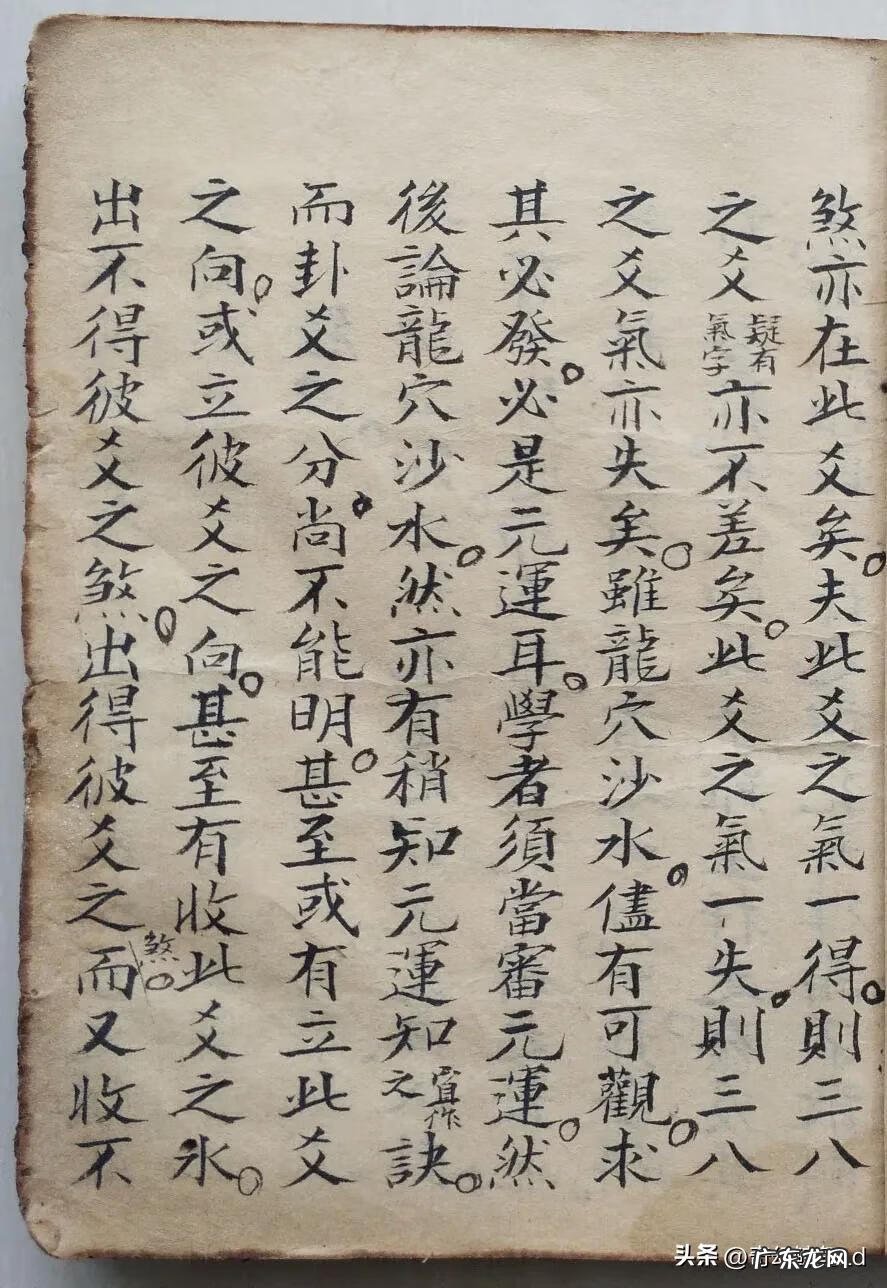 煞亦在此爻矣。夫此爻之氣一得。則三八
之爻疑有氣字亦不差矣。此爻之氣一失。則三八
之爻氣亦失矣。雖龍穴沙水。儘有可觀。求
其必發。必是元運耳。學者須當審元運。然
後論龍穴沙水。然亦有稍知元運知宜作之訣。
而卦爻之分。尚不能明。甚至或有立此爻
之向。或立彼爻之向。甚至有收此爻之水。
出不得彼爻之煞。出得彼爻之煞。而又收不
头条 @广东龙网